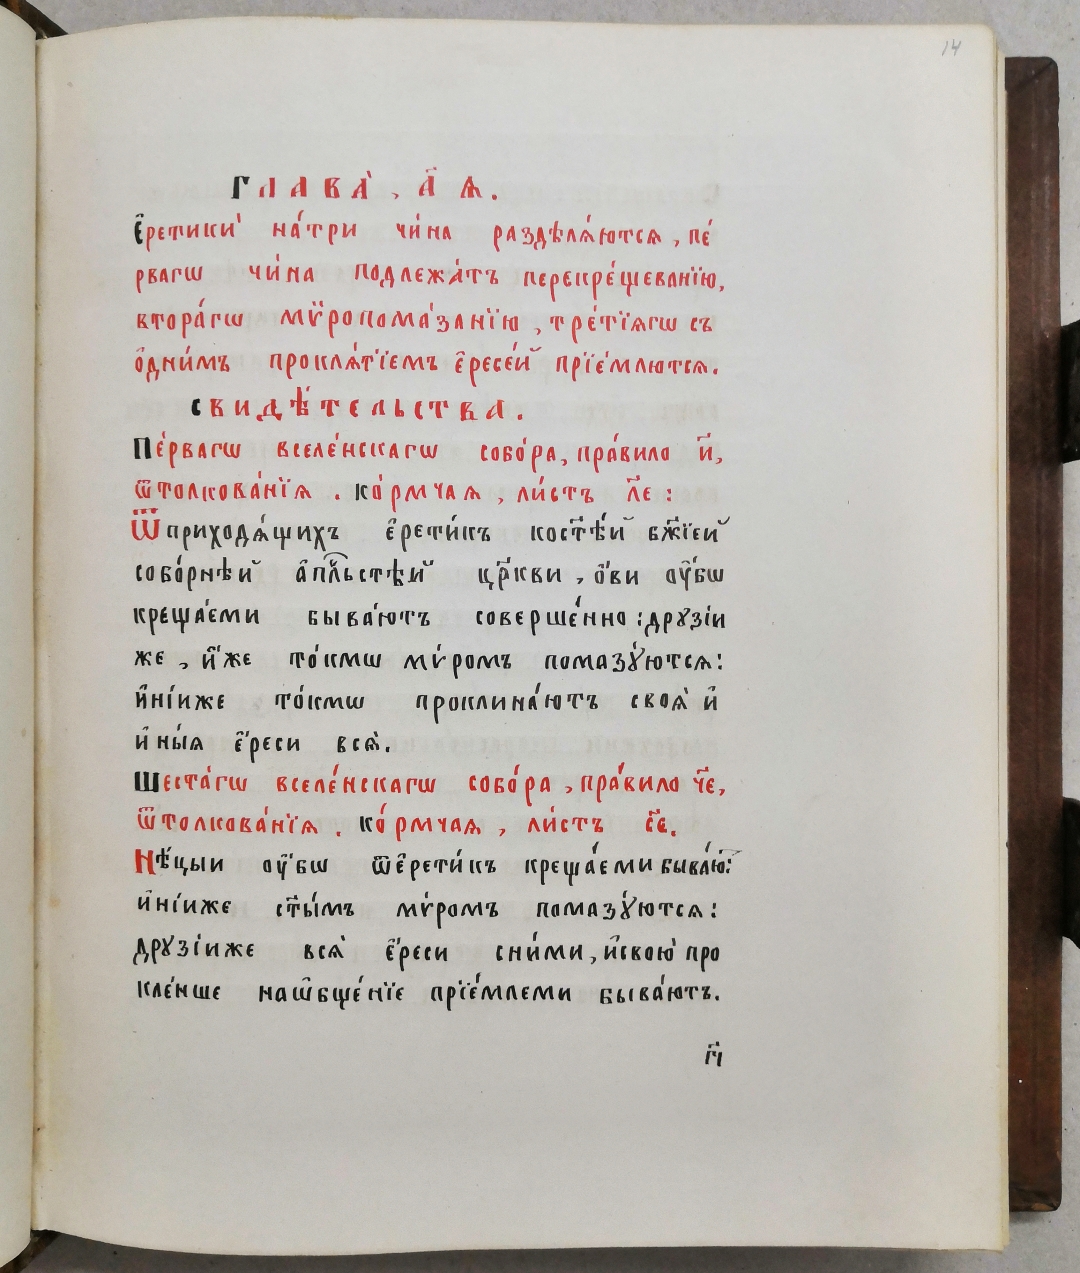 14
Глава̀, а҃ ѧ.
Е҆ретикѝ на́три чи́на раздѣлѧ́ютсѧ, пе́
рвагѡ чи́на подлежа́тъ перекре́щеванїю,
втора́гѡ мѵ̈ропома́занїю, тре́тїягѡ съ
ѻ҆дни́мъ проклѧ́тїемъ є҆ресе́й прїе́млютсѧ.
свидѣ́тельства.
Пе́рвагѡ вселе́нскагѡ собо́ра, пра́вило и҃,
ѿтолкова́нїѧ. ко́рмчаѧ, ли́стъ л҃е:
Ѿ приходѧ́щихъ є҆рети́къ кост҃ѣ́й бж҃їей
собо́рнѣй а҆пⷭ҇льстѣ́й цр҃кви, ѻ҆́ви ᲂу҆́бѡ
креща́еми быва́ютъ соверше́нно: дрꙋзі́и
же, и҆́же то́кмѡ мѵ́ромъ помазꙋ́ютсѧ:
и҆ні́иже то́кмѡ проклина́ютъ своѧ̀ и҆
и҆ны́ѧ є҆́реси всѧ̀.
Шеста́гѡ вселе́нскагѡ собо́ра, пра́вило ч҃е,
ѿтолкова́нїѧ. ко́рмчаѧ, ли́стъ с҃є.
Нѣ́цыи ᲂу҆́бѡ ѿє҆рети́къ креща́еми быва́ю:
и҆ні́иже ст҃ы́мъ мѵ́ромъ помазꙋ́ютсѧ:
дрꙋзі́иже всѧ̀ є҆́реси сни́ми, и҆свою̀ про
кле́нше наѡ҆бще́нїе прїе́млеми быва́ютъ.
г҃і